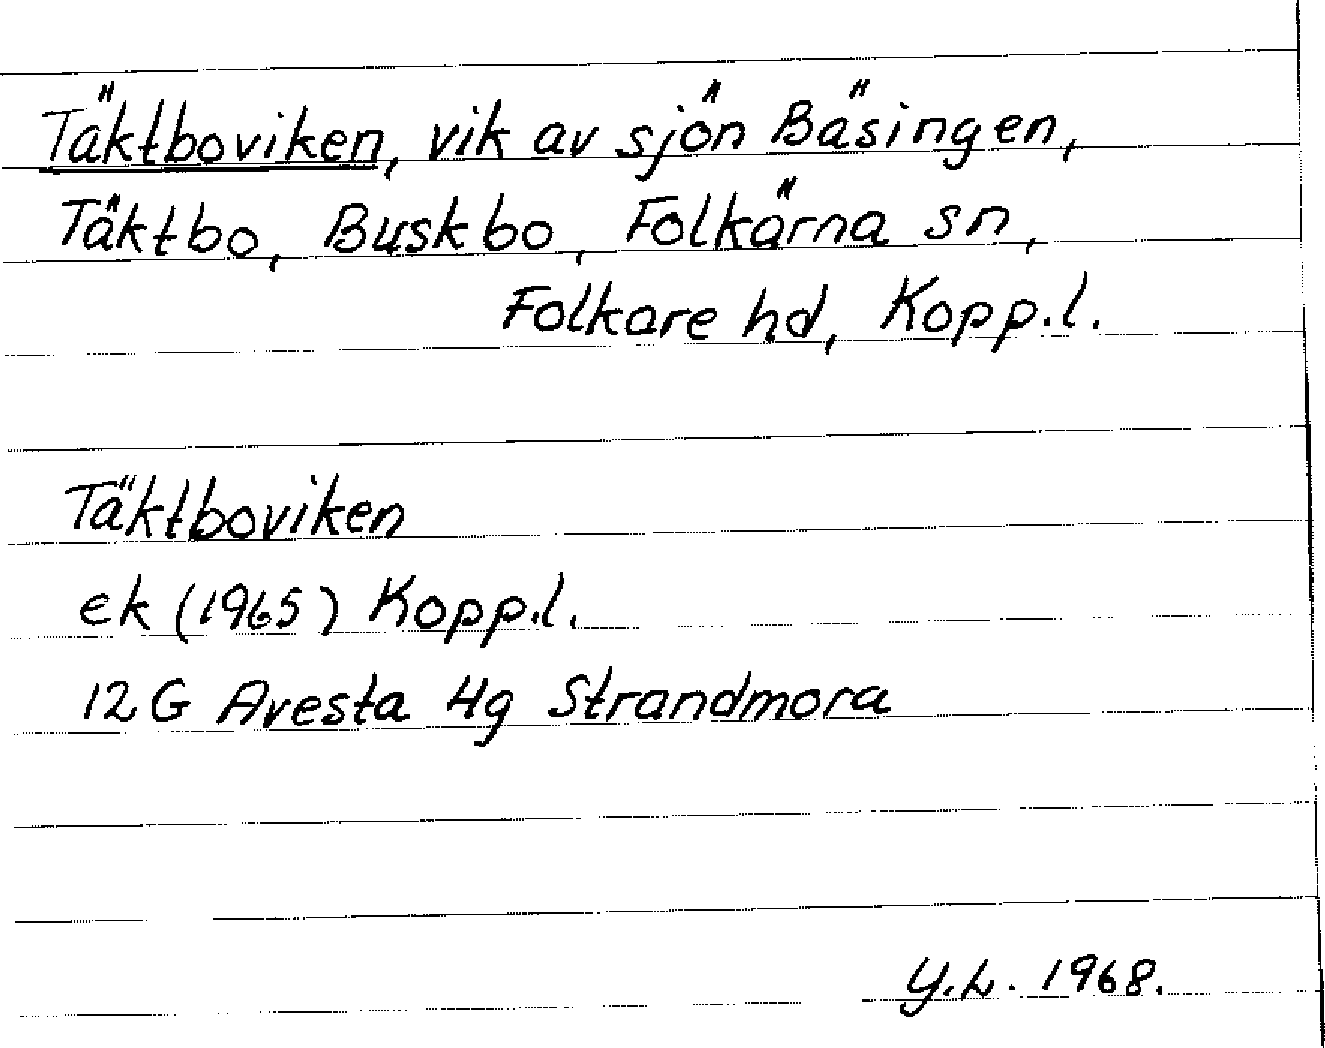 Täktboviken, vik av sjön Bäsingen,
Täktbo, Buskbo, Folkärna sn,
Folkare hd, Kopp.l.
Täktboviken
ek (1965) Kopp.l.
12G Avesta 4g Strandmora
Y.L. 1968.